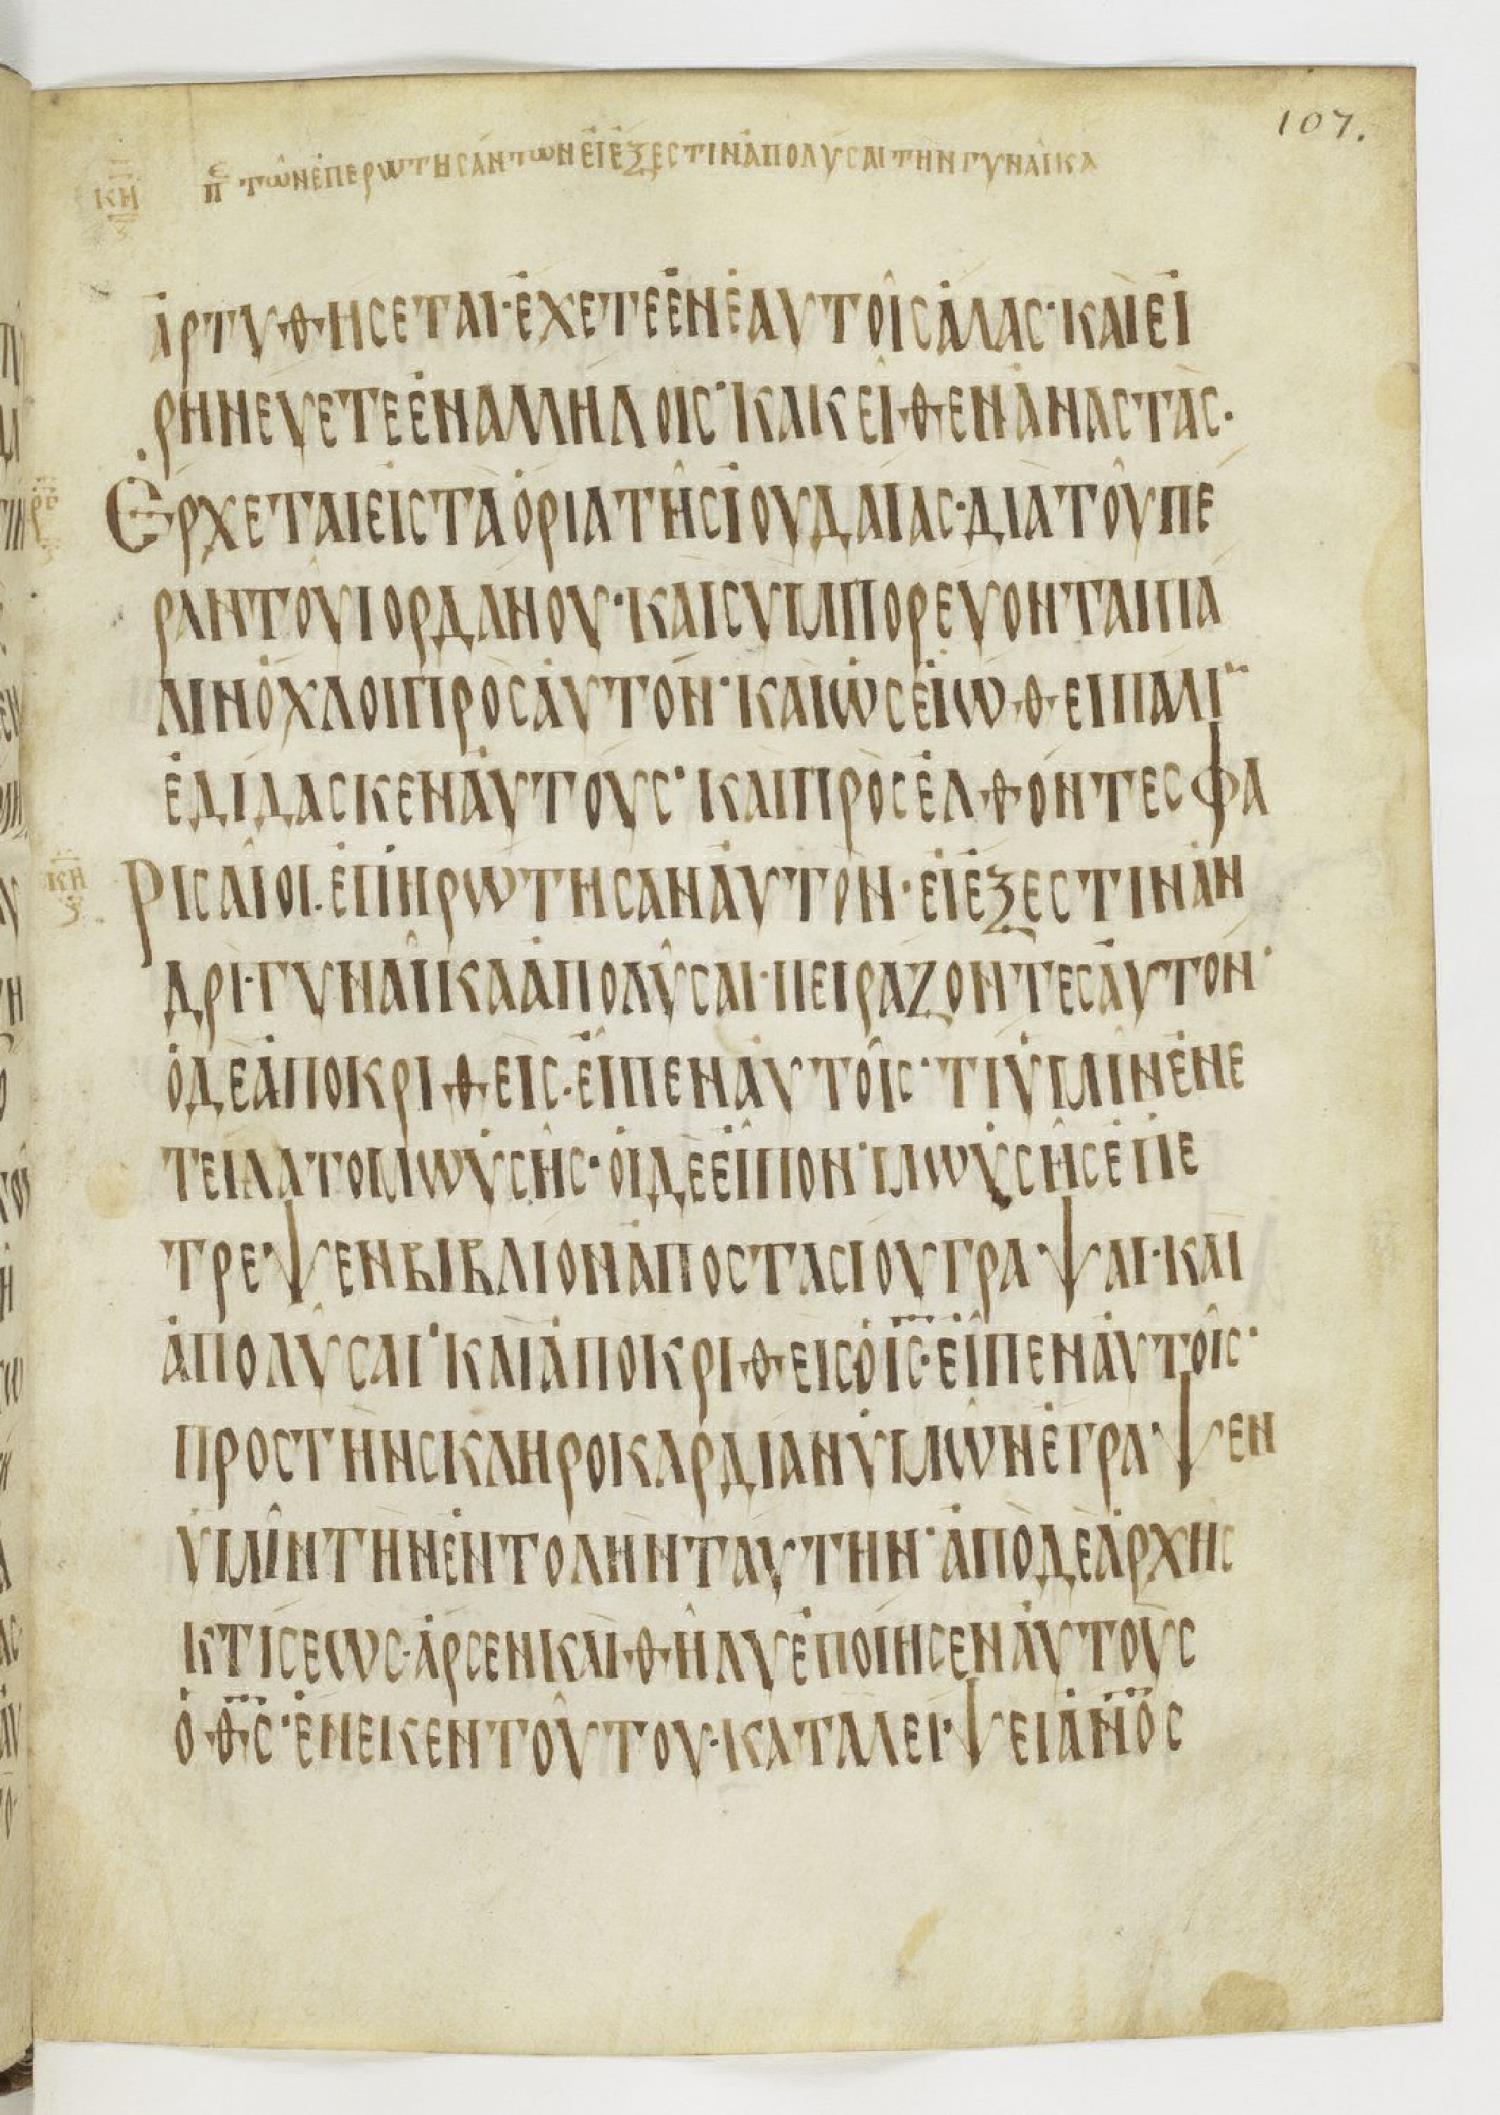 107.
ΚΗ ΠΕ ΤΩΝ ΕΠΕΡΩΤΗΣΑΝΤΩΝ ΕΙ ΕΞΕΣΤΙΝ ΑΠΟΛΥΣΑΙ ΤΗΝ ΓΥΝΑΙΚΑ
ἀρτυθήσεται· ἔχετε ἐν ἑαυτοῖς ἅλας· καὶ εἰ
ρηνεύετε ἐν ἀλλήλοις· κἀκεῖθεν ἀναστὰς·
Ἔρχεται εἰς τὰ ὅρια τῆς ἰουδαίας· διὰ τοῦ πέ
ραν τοῦ ιορδάνου· καὶ συμπορεύονται πά
λιν ὄχλοι πρὸς ἀυτόν· καὶ ὡς εἰώθει πάλι
ἐδίδασκεν ἀυτούς· καὶ προσελθόντες φα
Ρισαῖοι. ἐπηρώτησαν ἀυτὸν· εἰ ἔξεστιν ἀν
δρὶ· γυναῖκα ἀπολῦσαι· πειράζοντες ἀυτόν·
ὁ δὲ ἀποκριθεὶς· εἶπεν ἀυτοῖς· τί ὑμῖν ἐνε
τείλατο μωὑσῆς· ὁι δὲ εἶπον· μωὑσῆς ἐπέ
τρεψεν βιβλίον ἀποστασίου γράψαι· καὶ
ἀπολῦσαι· καὶ ἀποκριθεὶς ὁ ις· εἶπεν ἀυτοῖς·
πρὸς τὴν σκληροκαρδίαν ὑμῶν ἔγραψεν
ὑμῖν τὴν ἐντολὴν ταύτην· ἀπὸ δὲ ἀρχῆς
κτίσεως· ἄρσεν καὶ θῆλυ ἐποίησεν ἀυτοὺς
ὁ θς· ἕνεκεν τούτου· καταλείψει ἀνος